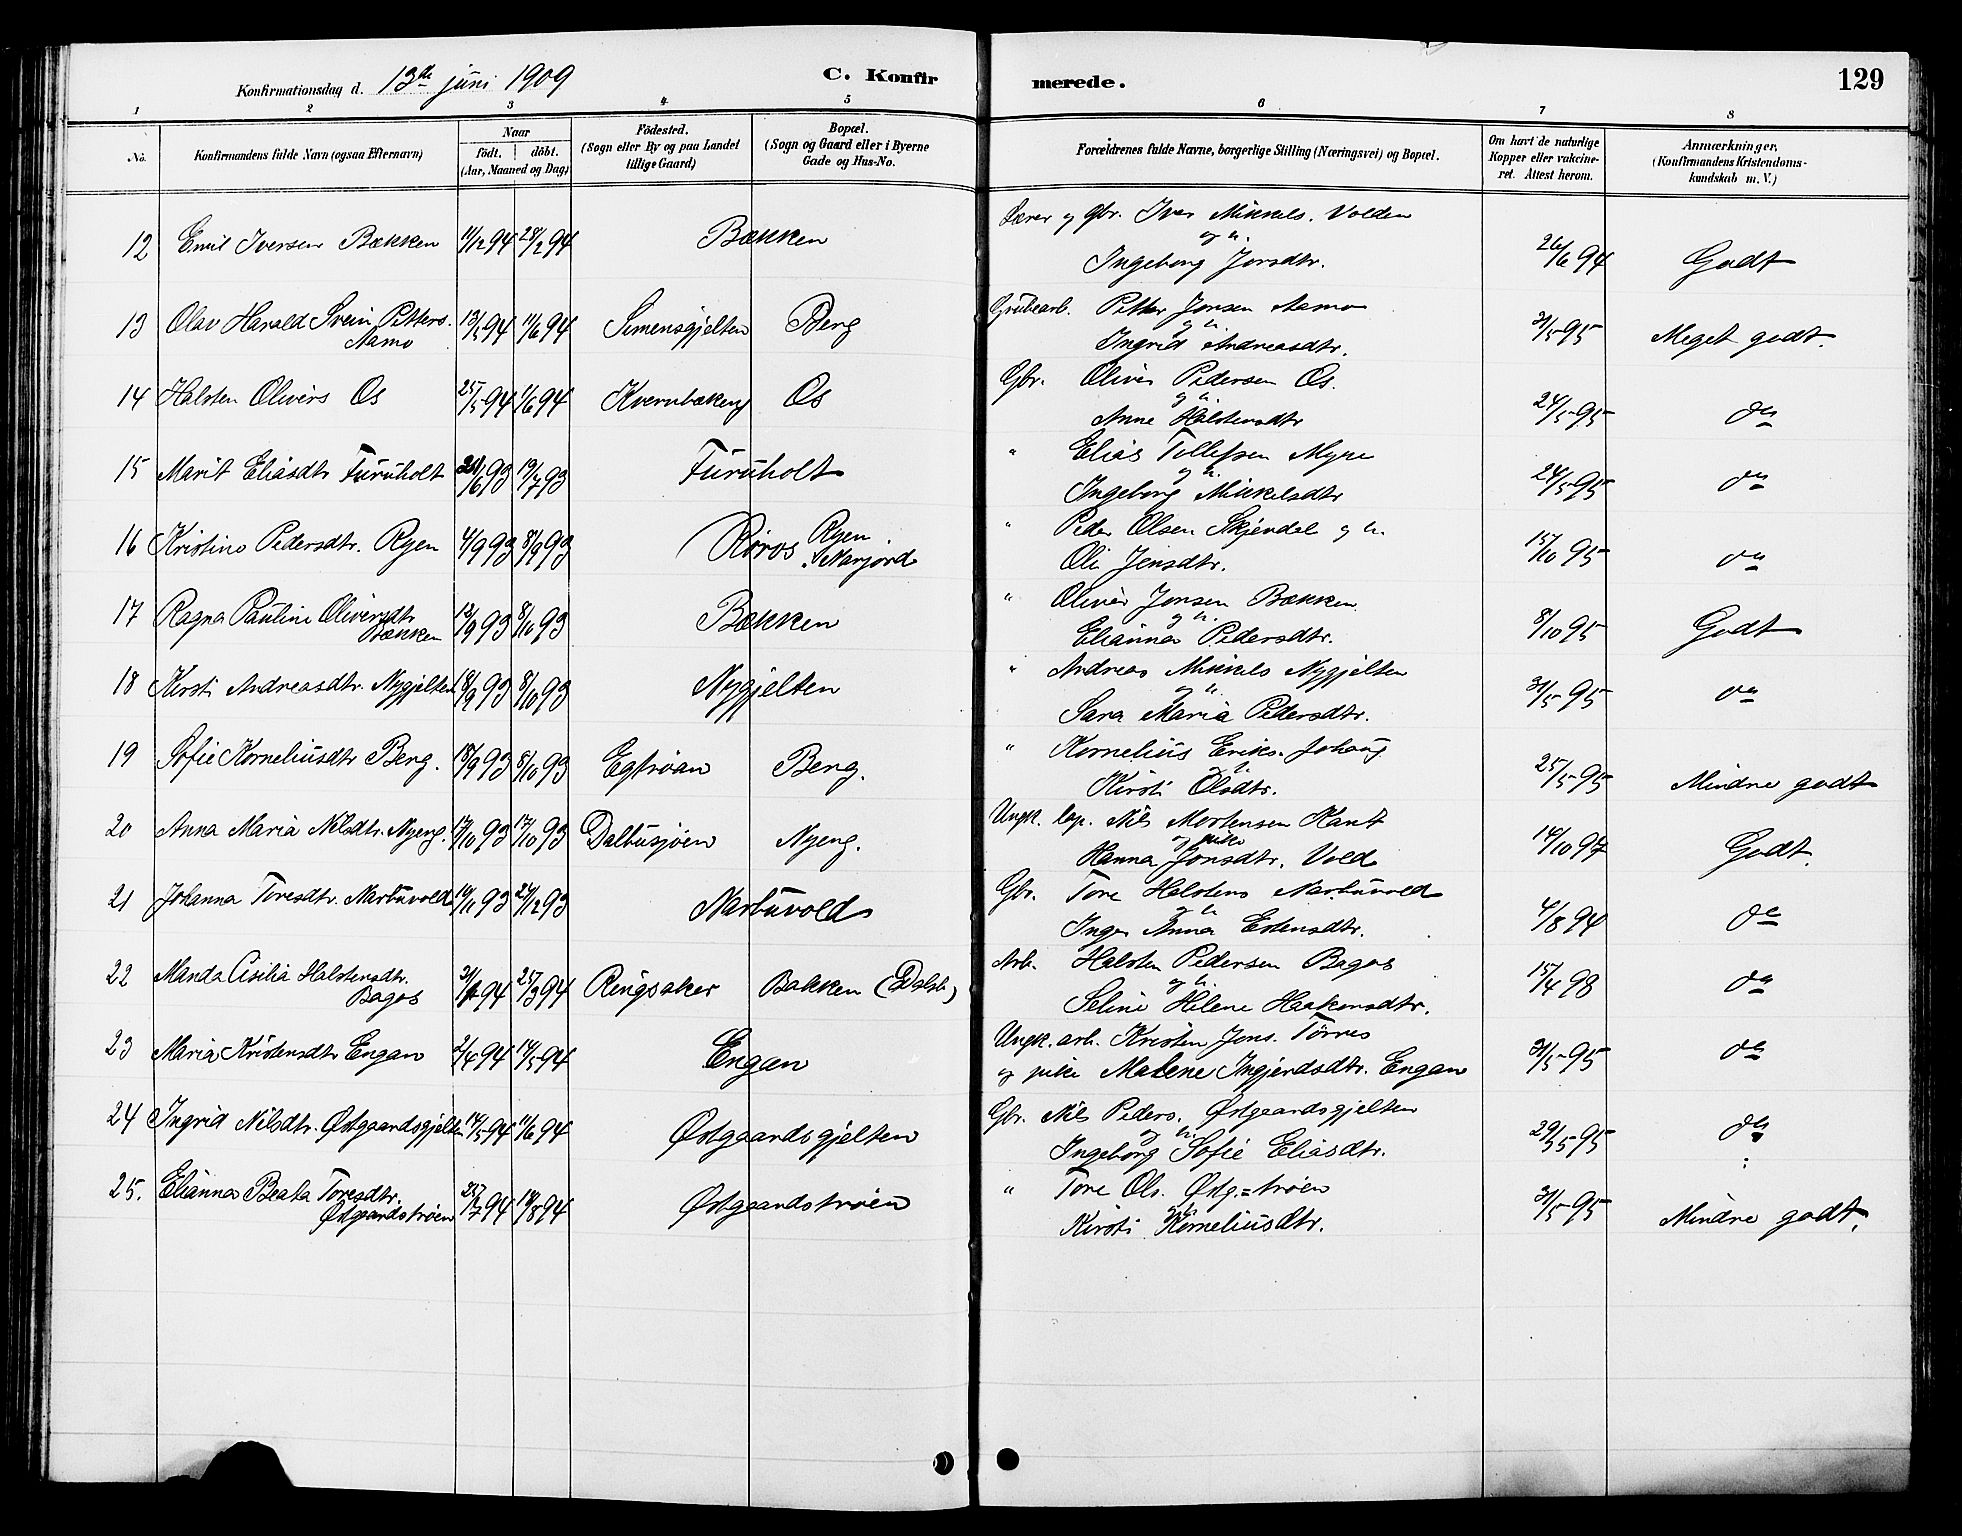 Konfirmationsdag d. 13de juni 1909
C. Konfirmerede.
129
1 2 3 4 5 6 7 8
No.
Konfirmandens fulde Navn (ogsaa Efternavn)
Naar
födt. döbt.
(Aar, Maaned og Dag)
Födested.
(Sogn eller By og paa Landet
tillige Gaard)
Bopæl.
(Sogn og Gaard eller i Byerne
Gade og Hus-No.
Forældrenes fulde Navne, borgerlige Stilling (Næringsvei) og Bopæl.
Om havt de naturlige
Kopper eller vakcine-
ret. Attest herom.
Anmærkninger.
(Konfirmandens Kristendoms-
kundskab m. V.)
12 Emil Iversen Bækken 11/12 94 28/2 94 Bækken Lærer og gbr. Iver Mikkels. Volden
og h.
Ingeborg Jorsdtr. 26/6 94 Godt
13 Olav Harald Svein Petters.
Aamo 13/5 94 11/6 94 Simensgjelten Berg Grubearb. Petter Jonsen Aamo
og h.
Ingrid Andreasdtr. 31/5 95 Meget godt.
14 Halsten Olivers Os 25/5 94 11/6 94 Kvernbækeng Os Gbr. Oliver Pedersen Os.
og h.
Anne Halstensdtr 24/5 95 do
15 Marit Eliasdtr Furuholt /6 93 19/7 93 Furuholt " Elias Tollefsen Myre
og h.
Ingeborg Mikkelsdtr 24/5 95 do
16 Kristine Pedersdtr. Ryen 4/9 93 8/9 93 Röros Ryen
Narjord " Peder Olsen Skjendal og h.
Oli Jensdtr. 15/10 95 do
17 Ragna Pauline Oliversdtr
Bækken 12/9 93 8/10 93 Bækken " Oliver Jonsen Bækken
og h.
Elianna Pedersdtr. 8/10 95 Godt
18 Kirsti Andreasdtr. Nygjelten 18/9 93 8/10 93 Nygjelten " Andreas Mikkels Nygjelten
og h.
Sara Maria Pedersdtr. 31/5 95 do
19 Sofie Korneliusdtr Berg. 18/9 93 8/10 93 Egtrøan Berg. " Kornelius Eriks. Johaug
og h.
Kirsti Olsdtr. 25/5 95 Mindre godt
20 Anna Maria Nilsdtr. Nyeng. 17/10 93 17/10 93 Dalbusjøen Nyeng. Ungk. lap. Nils Mortensen Kant
og pike
Hanna Jonsdtr. Vold 14/10 97 Godt
21 Johanna Toresdtr. Narbuvold 19/11 93 24/12 93 Narbuvold Gbr. Tore Halstens Narbuvold
og h.
Inger Anna Estensdtr. 4/8 94 do
22 Manda Cisilia Halstensdtr.
Bagos 31/1 94 25/3 94 Ringsaker Bakken (Dalsb.) Arb. Halsten Pedersen Bagos
og h.
Seline Helene Haakensdtr. 15/4 98 do
23 Maria Kristensdtr Engan 2/4 94 14/5 94 Engan Ungk. arb. Kristen Jons. Tørres
og pike Malene Ingjerdsdtr. Engan 31/5 95 do
24 Ingrid Nilsdtr. Østgaardsgjelten 14/5 94 11/6 94 Østgaardsgjelten Gbr. Nils Peders. Østgaardsgjelten
og h.
Ingeborg Sofie Eliasdtr. 29/5 95 do
25. Elianna Beata Toresdtr.
Østgaardstrøen /7 94 19/8 94 Østgaardstrøen " Tore Ols. Østg.=trøen
og h.
Kirsti Korneliusdtr. 31/5 95 Mindre godt.